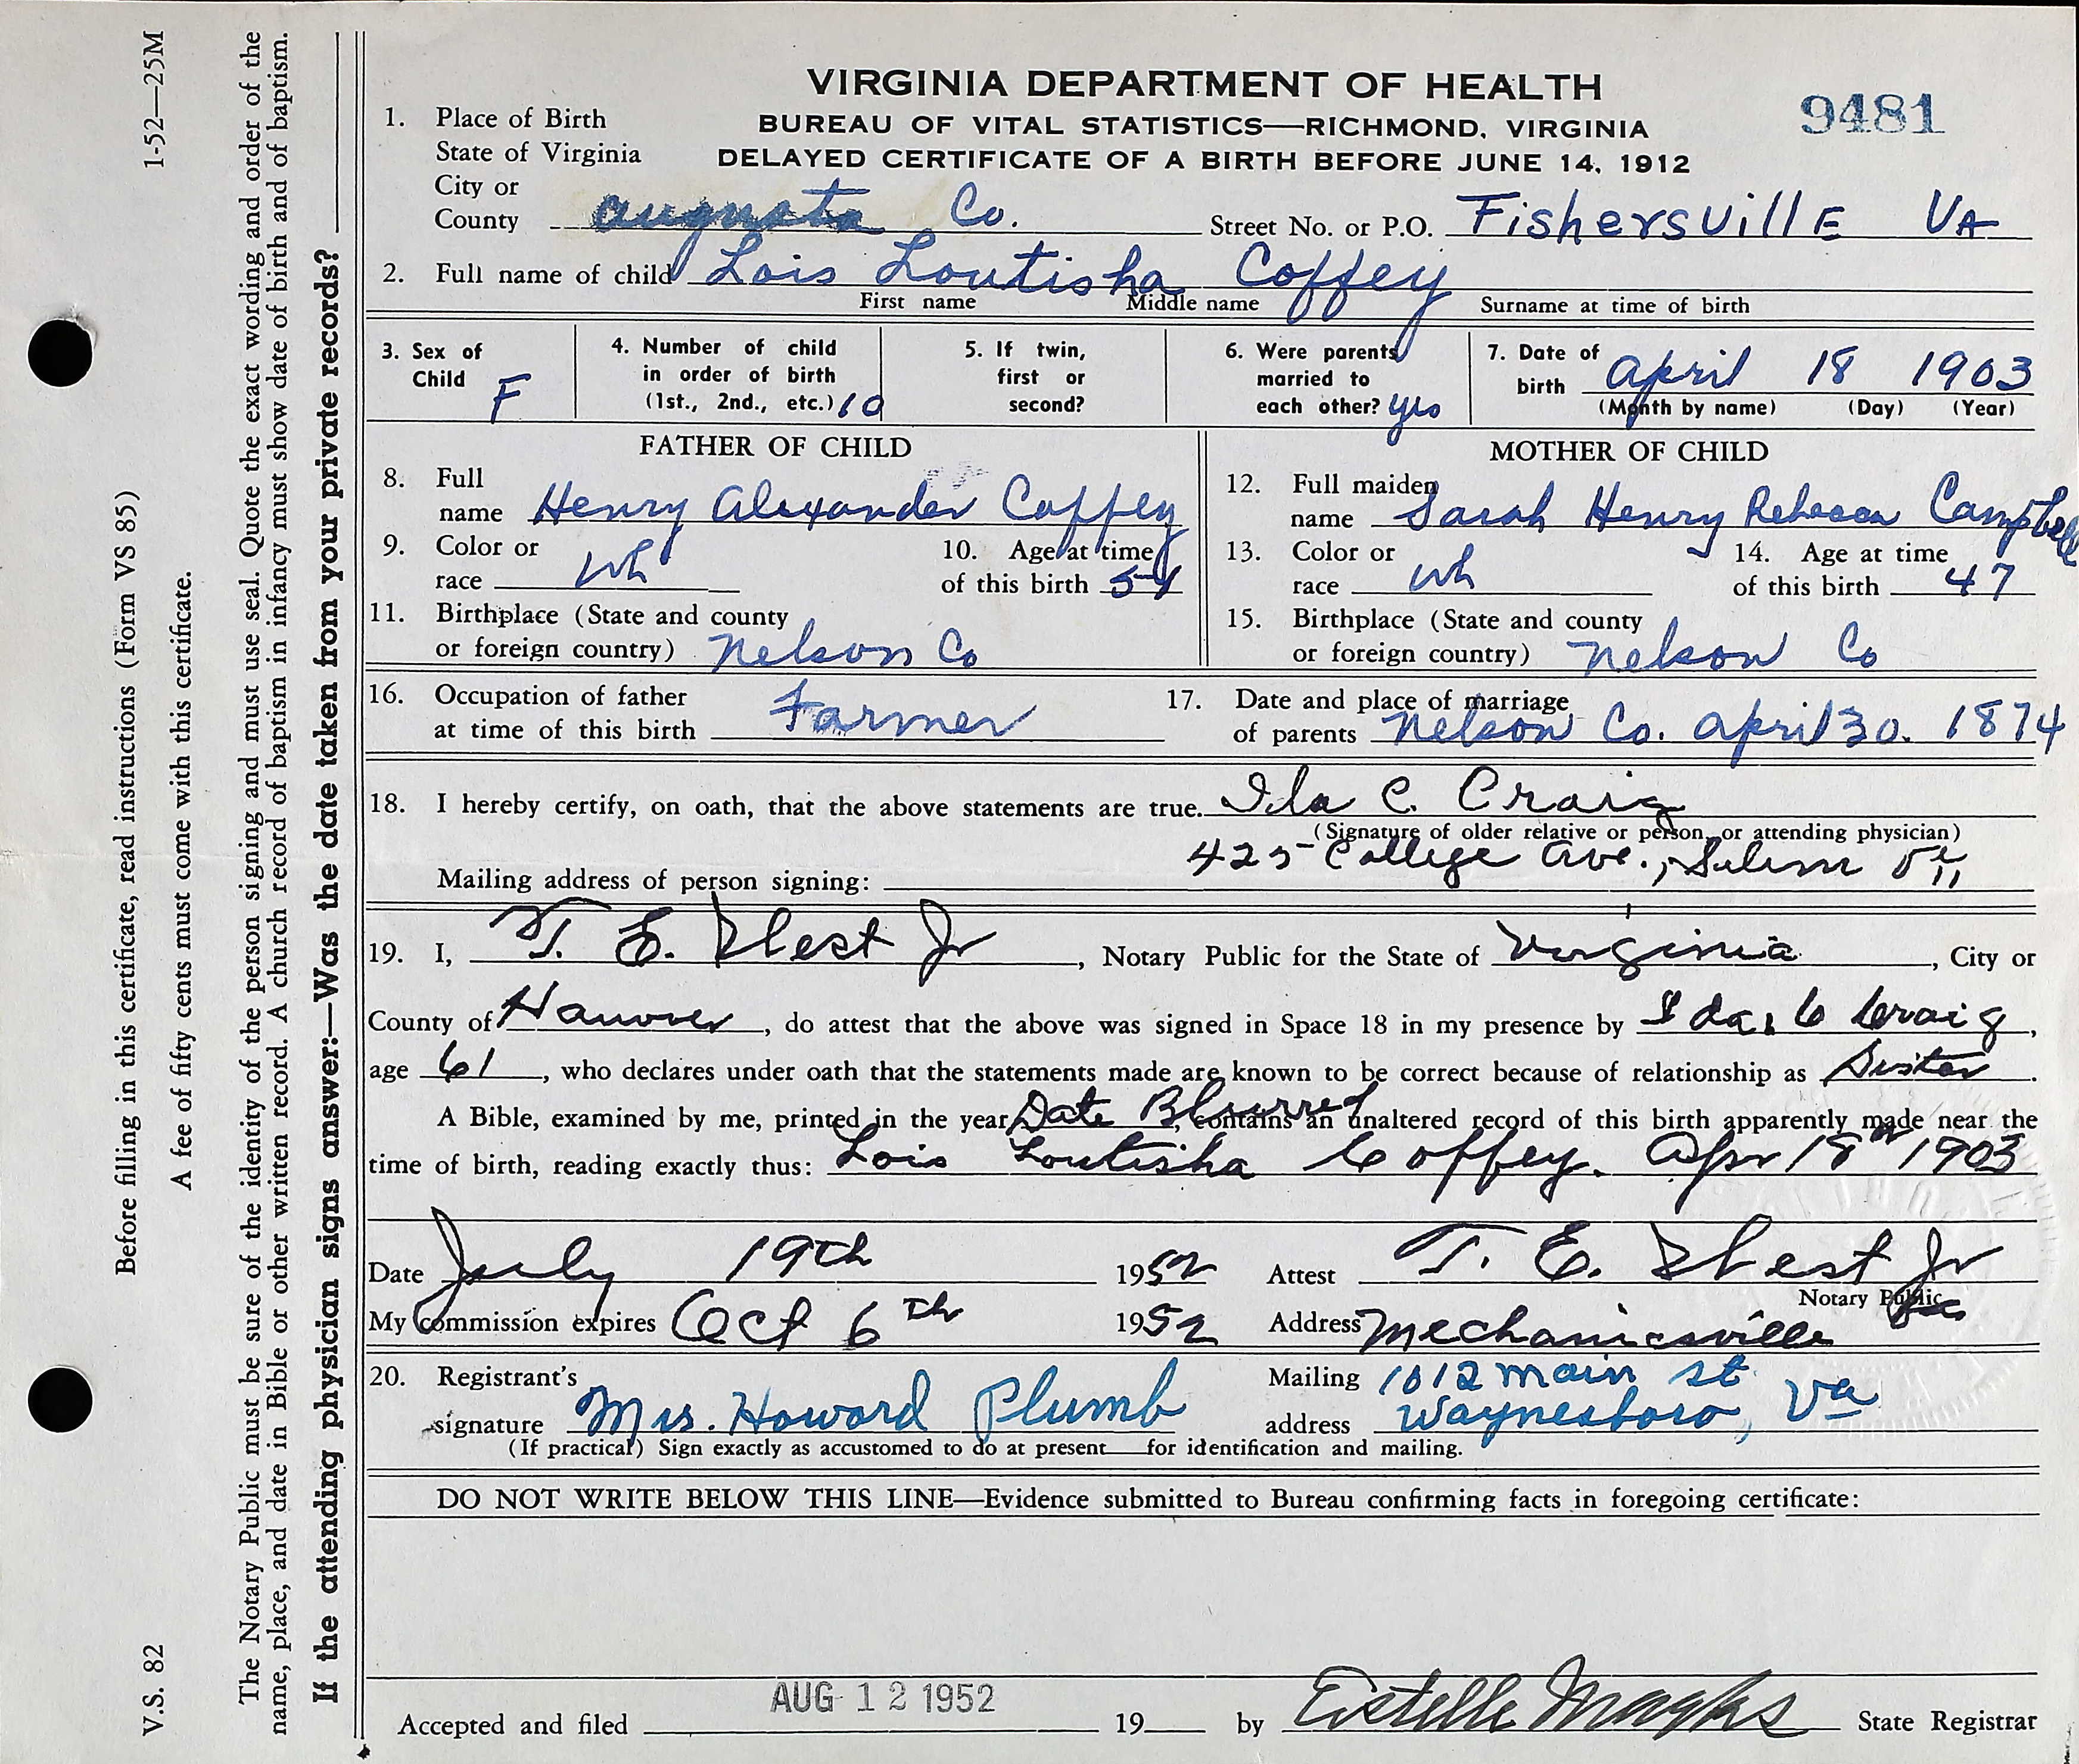 VIRGINIA DEPARTMENT OF HEALTH
BUREAU OF VITAL STATISTICS—RICHMOND, VIRGINIA
DELAYED CERTIFICATE OF A BIRTH BEFORE JUNE 14, 1912
9481
1. Place of Birth
State of Virginia
City or
County Augusta Co. Street No. or P.O. Fishersville VA
2. Full name of child Lois Loutisha Coffey
First name Middle name Surname at time of birth
3. Sex of Child F
4. Number of child in order of birth (1st., 2nd., etc.) 10
5. If twin, first or second?
6. Were parents married to each other? yes
7. Date of birth April 18 1903
(Month by name) (Day) (Year)
FATHER OF CHILD
8. Full name Henry Alexander Coffey
9. Color or race wh
10. Age at time of this birth 54
11. Birthplace (State and county or foreign country) Nelson Co
MOTHER OF CHILD
12. Full maiden name Sarah Henry Rebecca Campbell
13. Color or race wh
14. Age at time of this birth 47
15. Birthplace (State and county or foreign country) Nelson Co
16. Occupation of father at time of this birth Farmer
17. Date and place of marriage of parents Nelson Co. April 30. 1874
18. I hereby certify, on oath, that the above statements are true. Ida C. Craig
(Signature of older relative or person, or attending physician)
Mailing address of person signing: 425 College Ave., Salem Va
19. I, T. E. West Jr, Notary Public for the State of Virginia, City or
County of Hanover, do attest that the above was signed in Space 18 in my presence by Ida C Craig,
age 61, who declares under oath that the statements made are known to be correct because of relationship as Sister.
A Bible, examined by me, printed in the year Date Blurred, contains an unaltered record of this birth apparently made near the
time of birth, reading exactly thus: Lois Loutisha Coffey. Apr 18th 1903
Date July 19th 1952 Attest T. E. West Jr
Notary Public
My commission expires Oct 6th 1952 Address Mechanicsville
20. Registrant's signature Mrs. Howard Plumb
Mailing address 1012 Main st Waynesboro, Va
(If practical) Sign exactly as accustomed to do at present—for identification and mailing.
DO NOT WRITE BELOW THIS LINE—Evidence submitted to Bureau confirming facts in foregoing certificate:
Accepted and filed AUG 12 1952 19 by Estelle Marks State Registrar
V.S. 82 1-52—25M
Before filling in this certificate, read instructions (Form VS 85)
A fee of fifty cents must come with this certificate.
The Notary Public must be sure of the identity of the person signing and must use seal. Quote the exact wording and order of the
name, place, and date in Bible or other written record. A church record of baptism in infancy must show date of birth and of baptism.
If the attending physician signs answer:—Was the date taken from your private records?